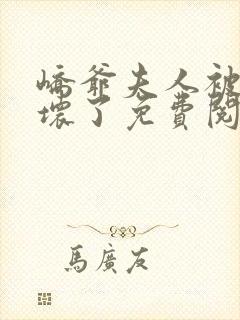 嶠爺夫人被
壞了免費閱
馬廣友